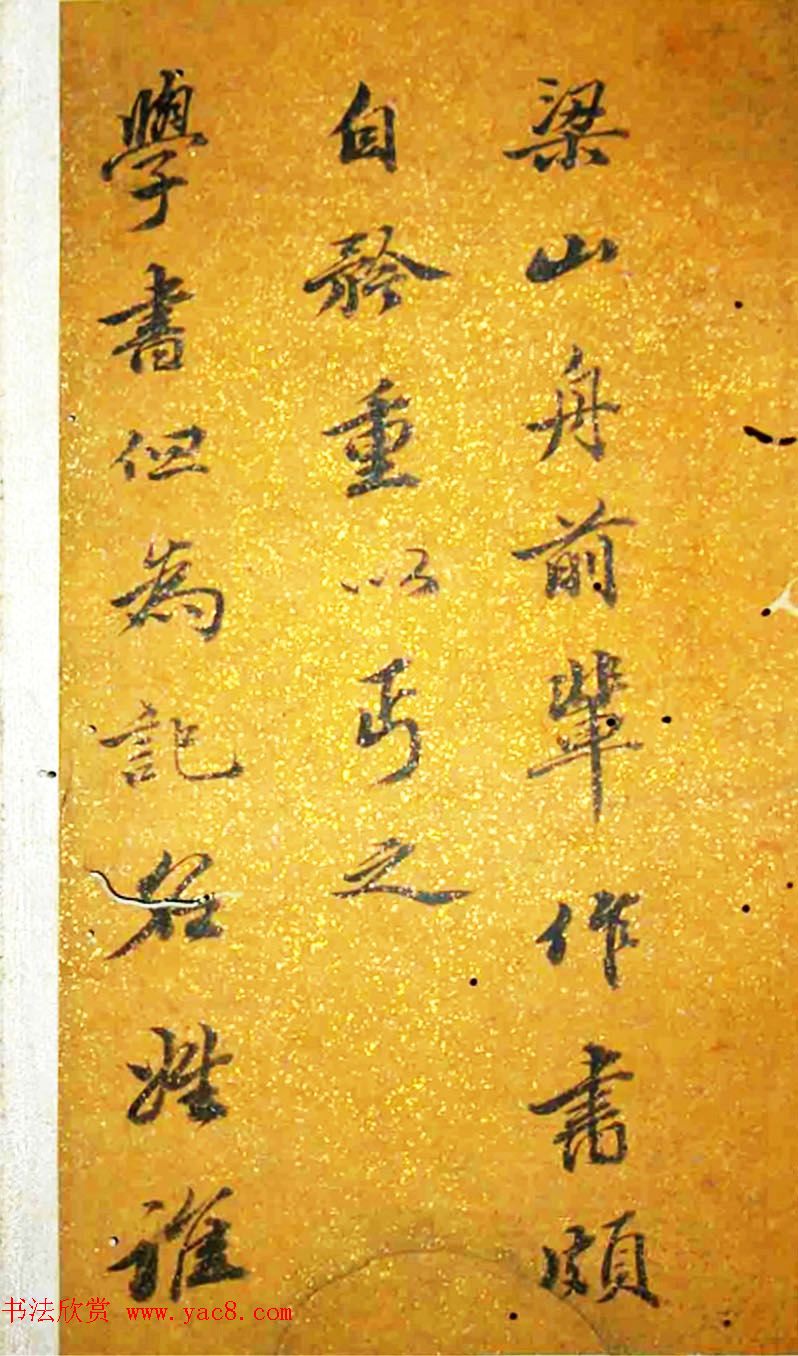 梁山舟前輩作書頗
自矜重以丐之
學書但為記名姓誰
书法欣赏 www.yac8.com